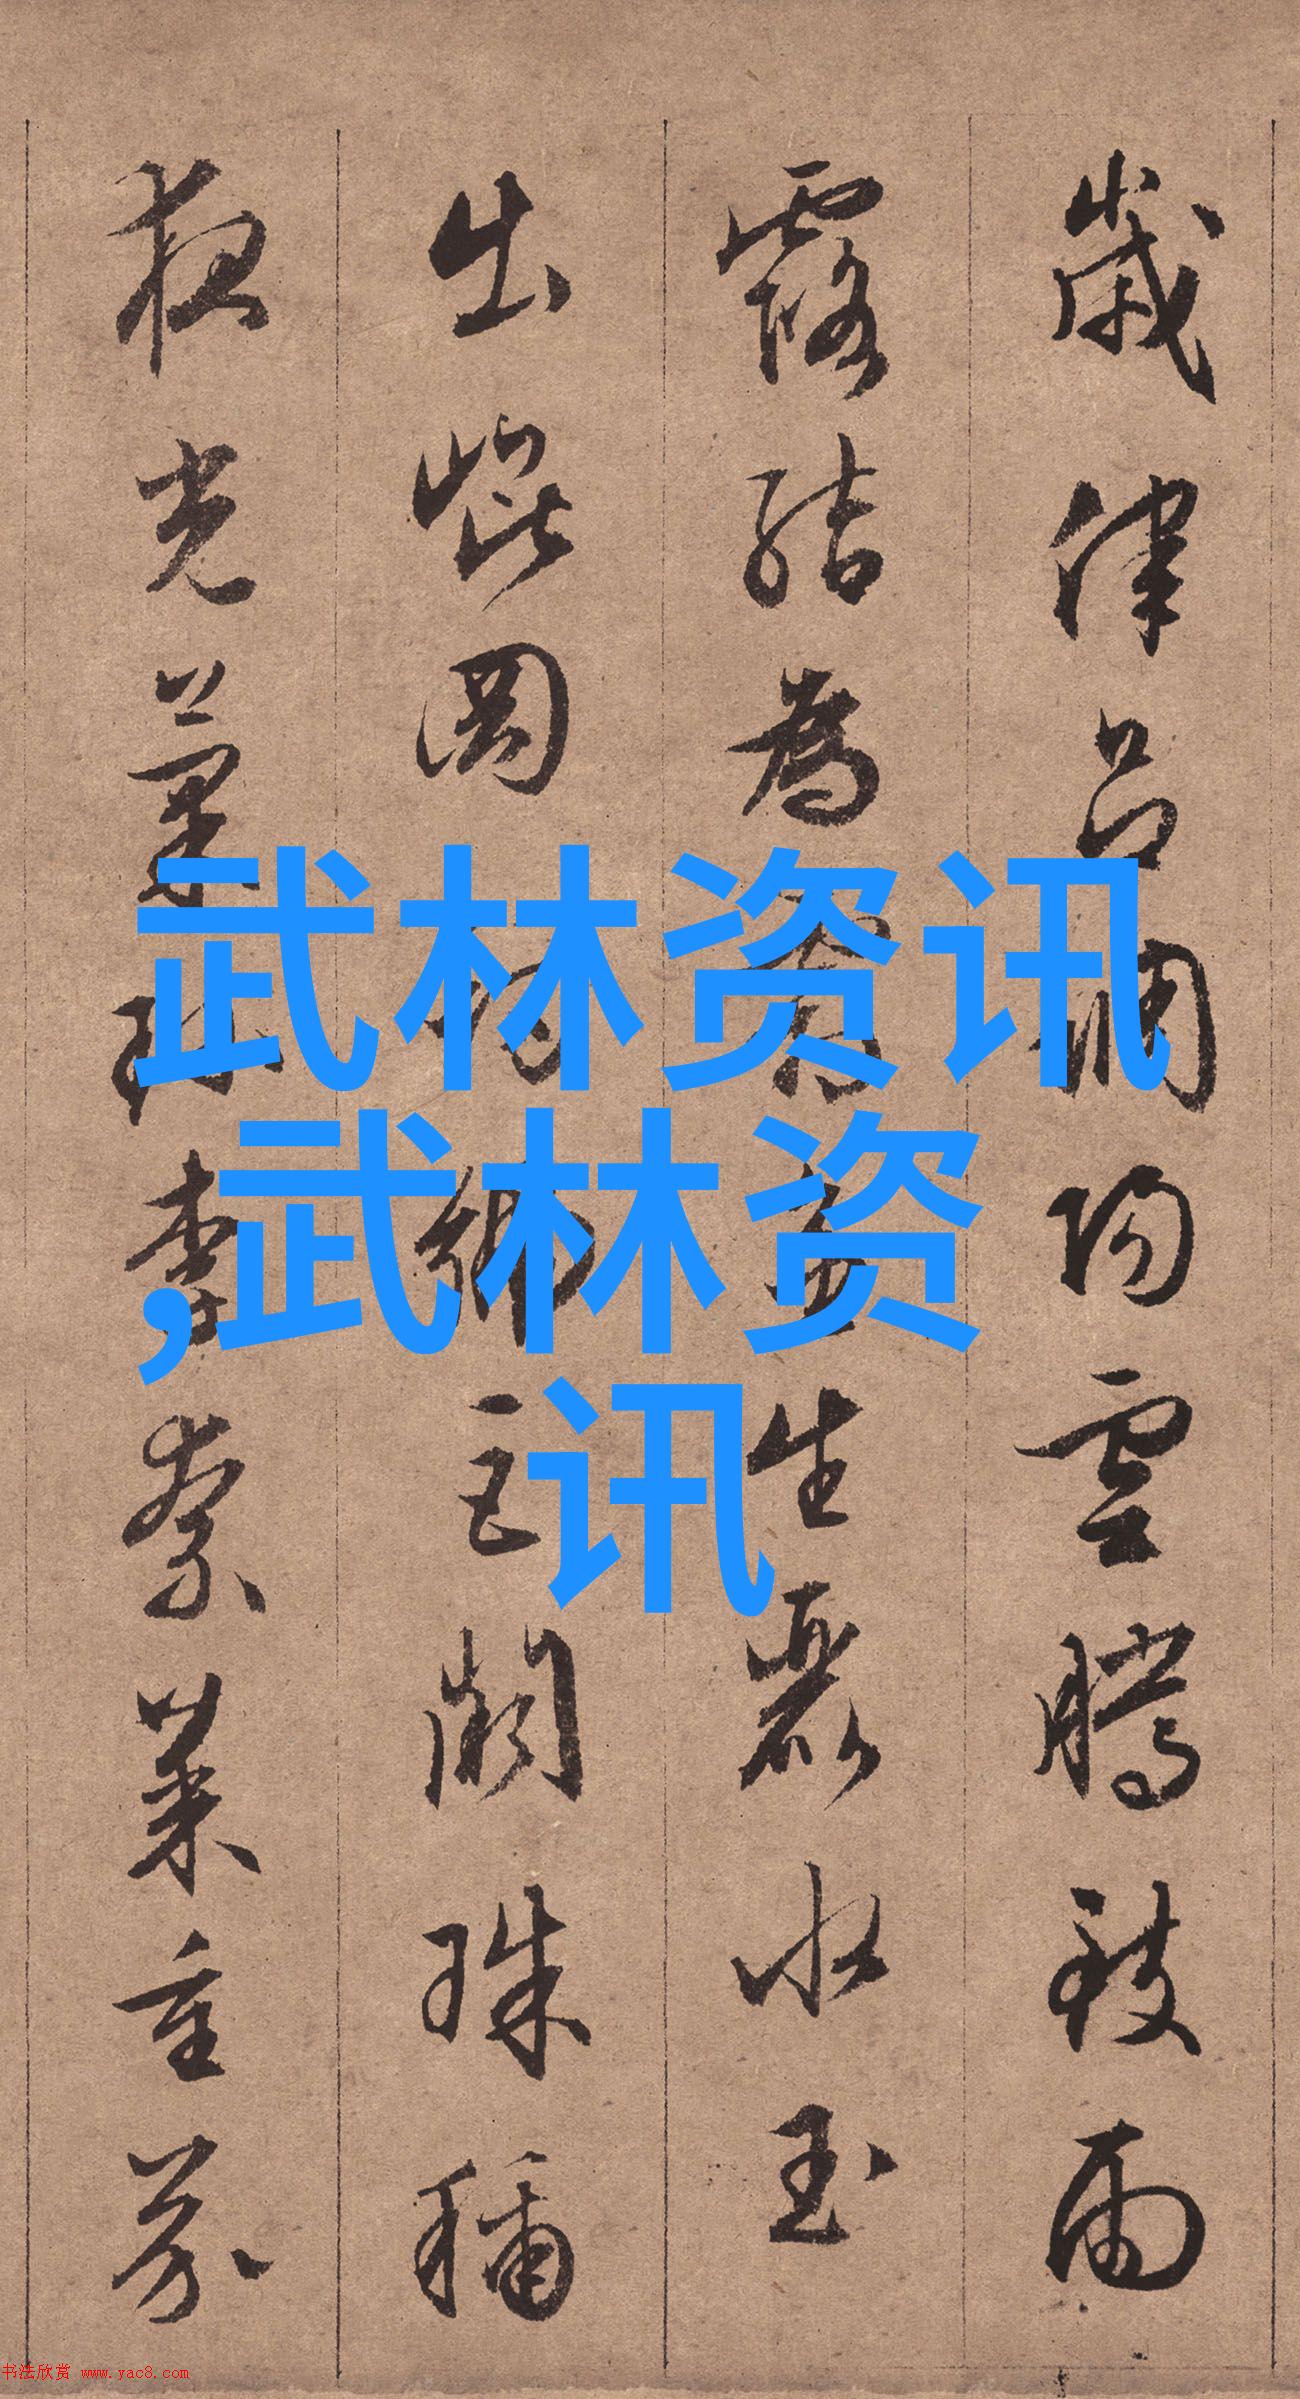 歲律吕調陽雲騰致雨
露結為生麗水玉
出崐岡巨闕珠稱
夜光菓珎李柰菜重芥
武林资讯
,武林资
讯
书法欣赏 www.yac8.com